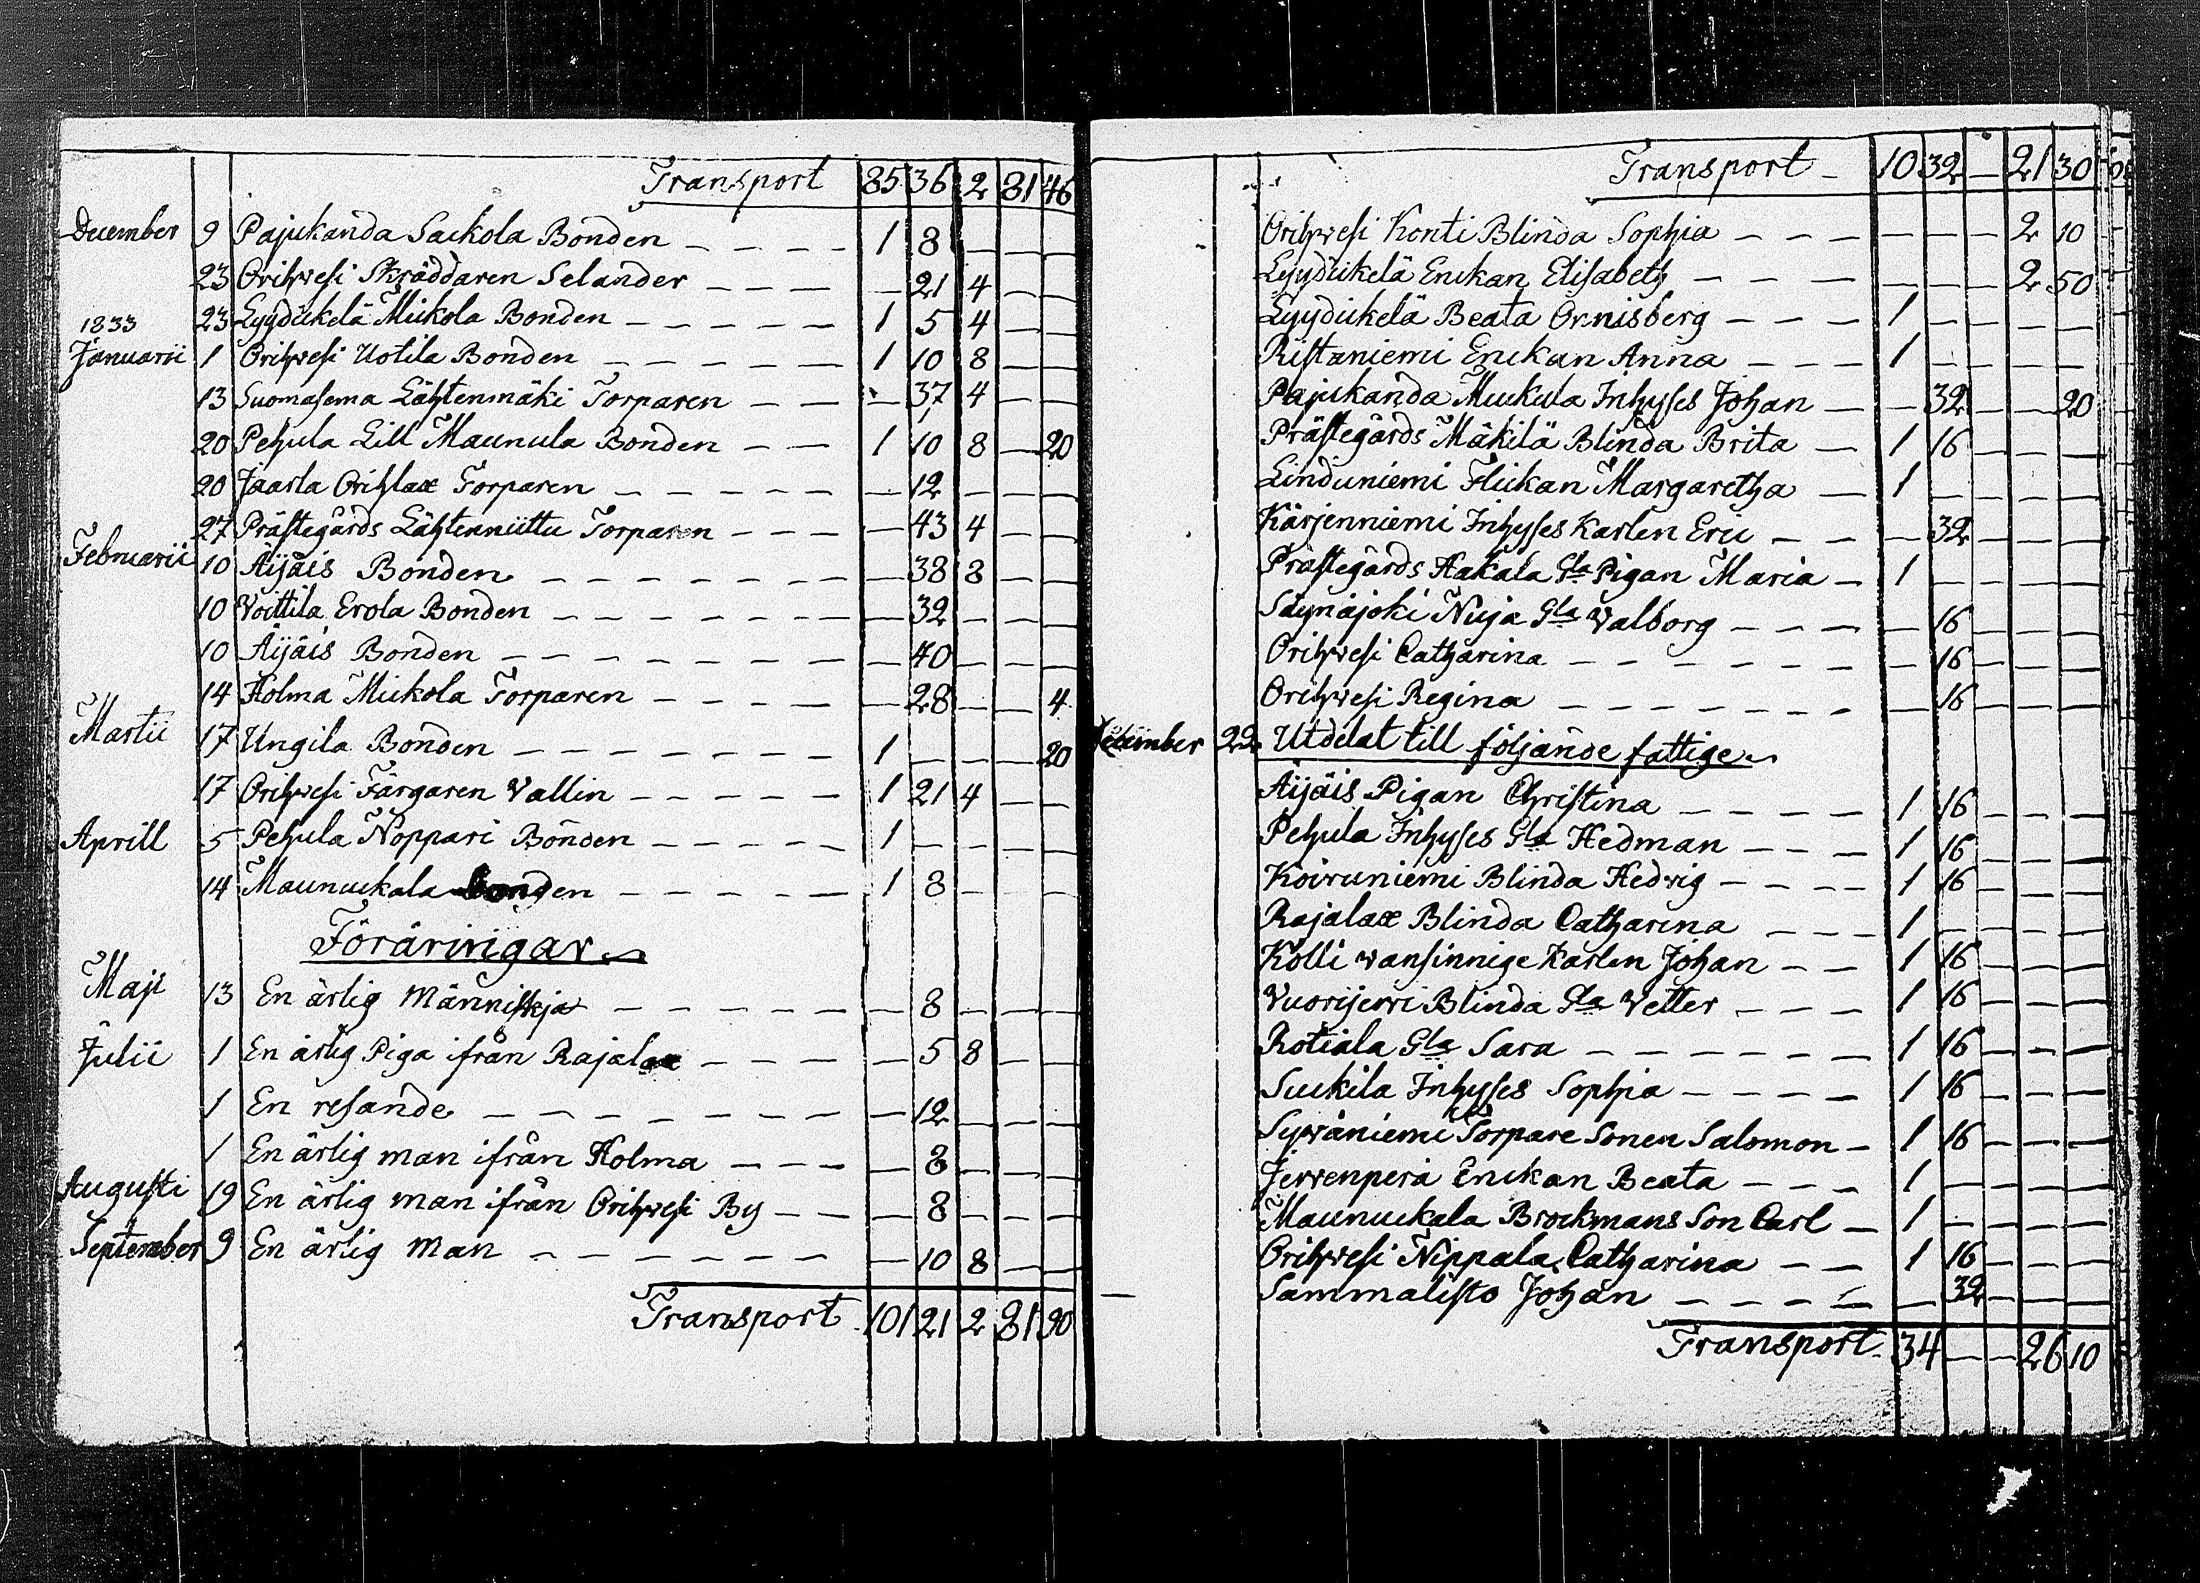 Transport 85 36 2 81 46
December 9 Pajukanda Sackola Bonden — — — — 1 8 — — —
23 Orihvesi Skräddaren Selander — — — — 21 4 — —
23 Lyydikelä Mickola Bonden — — — — — 1 5 4 — —
1833
Januarii 1 Orihvesi Uotila Bonden — — — — — 1 10 8 — —
13 Suomasema Lähtenmäki Torparen — — — 37 4 — —
20 Pehula Lill Maunula Bonden — — 1 10 8 — 20
20 Jaarla Orihlax Torparen — — — — — — 12 — — —
27 Prästegårds Lähtenniittu Torparen — — — — 43 4 — —
Februarii 10 Äijäis Bonden — — — — — — — — 38 8 — —
10 Voittila Erola Bonden — — — — — — — 32 — — —
10 Äijäis Bonden — — — — — — — — 40 — — —
14 Holma Mickola Torparen — — — — — — 28 — — 4
Martii 17 Ungila Bonden — — — — — — — 1 — — — 20
17 Orihvesi Färgaren Vallin — — — — — 1 21 4 — —
Aprill 5 Pehula Noppari Bonden — — — — — 1 — — — —
14 Maunuckala Bonden — — — — — 1 8 — — —
Föräringar
Maji 13 En ärlig Människja — — — — — — 8 — — —
Julii 1 En ärlig Piga ifrån Rajalax — — — — — 5 8 — —
1 En resande — — — — — — — — 12 — — —
1 En ärlig man ifrån Holma — — — — — 8 — — —
Augusti 19 En ärlig man ifrån Orihvesi By — — — 8 — — —
September 9 En ärlig man — — — — — — — — 10 8 — —
Transport 101 21 2 81 90
Transport — 10 32 — 21 30
Orihvesi Konti Blinda Sophia — — — — — — 2 10
Lyydikelä Enckan Elisabeth — — — — — — 2 50
Lyydikelä Beata Ornisberg — — — 1 — — — —
Ristaniemi Enckan Anna — — — 1 — — — —
Pajukanda Muckula Inhyses Johan — — 32 — — 20
Prästegårds Mäkilä Blinda Brita — 1 16 — — —
Linduniemi Flickan Margaretha — 1 — — — —
Kärjenniemi Inhyses Karlen Eric — — — 32 — — —
Prästegårds Hakala Gla Pigan Maria — 1 — — — —
Säynäjoki Nuja Gla Valborg — — — — 16 — — —
Orihvesi Catharina — — — — — — — 16 — — —
Orihvesi Regina — — — — — — — — 16 — — —
December 22 Utdelat till följande fattige
Äijäis Pigan Christina — — — — 1 16 — — —
Pehula Inhyses Gla Hedman — — — 1 16 — — —
Koivuniemi Blinda Hedvig — — — — 1 16 — — —
Rajalax Blinda Catharina — — — 1 — — — —
Kolli vansinnige Karlen Johan — — 1 16 — — —
Vuorijervi Blinda Gla Vetter — — — 1 16 — — —
Rotiala Gla Sara — — — — — — 1 16 — — —
Suckila Inhyses Sophia — — — — 1 16 — — —
Syväniemi Torpare Sonen Salomon — 1 16 — — —
Jervenperä Enckan Beata — — — 1 — — — —
Maunuckala Brockmans Son Carl — 1 — — — —
Orihvesi Nippala Catharina — — 1 16 — — —
Sammalisto Johan — — — — — 32 — — —
Transport 34 — — 26 10